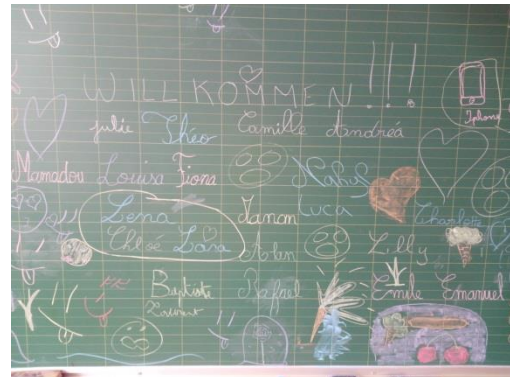 WILLKOMMEN !!!
Iphone
julie Théo Camille Andréa
Mamadou Louisa Fiona Nahys
Lena Manon Luca Charlotte
Chloé Lara Alan Lilly
Baptiste Rafael Emile Emanuel
Laurent